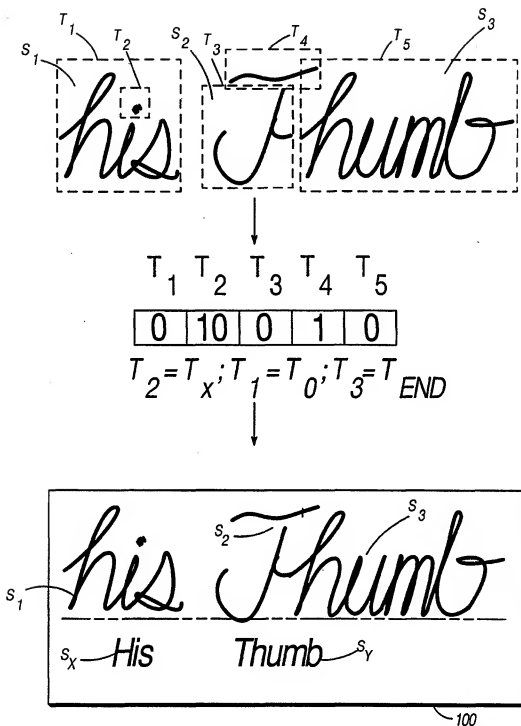 T1 T2 S2 T3 T4 T5 S3
S1
his Thumb
T1 T2 T3 T4 T5
0 10 0 1 0
T2 = Tx; T1 = T0; T3 = TEND
his Thumb
S2 S3
S1
SX His Thumb SY
100